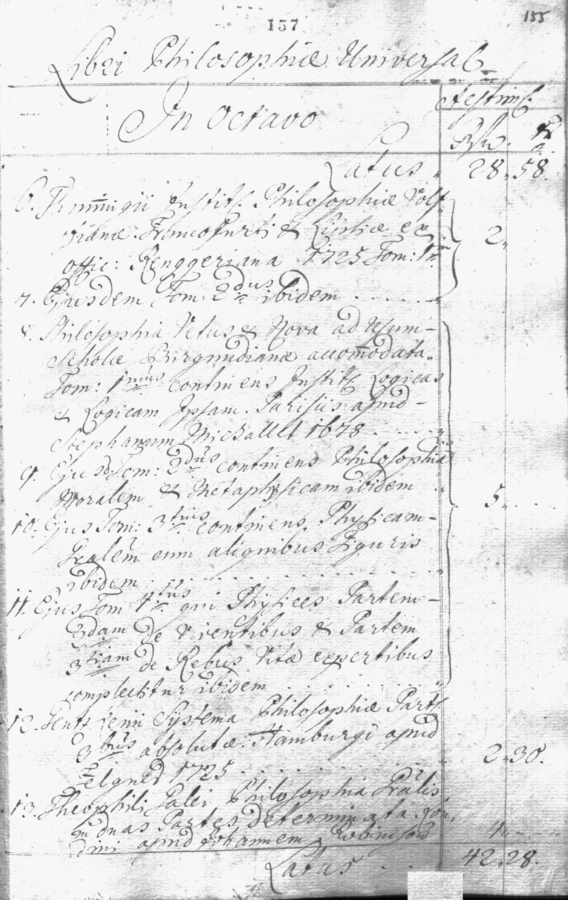 157
155
Libri Philosophiæ Universal.
In Octavo
Æstim.
Latus 28. 58.
6. Institt. Philosophiæ Wolf
fianæ. Francofurti & Lipsiæ ex
offic: Renggeriana. 1725 Tom: 1us 2.
7. Ejusdem Tom: 2dus ibidem
8. Philosophia Vetus & Nova ad Usum
Scholæ Burgundianæ accom̄odata.
Tom: 1mus continens Institt. Logicas
& Logicam Ipsam. Parisiis apud
Stephanum Michallet 1678
9. Ejusd. Tom: 2dus continens Philosophia
Moralem & Metaphysicam ibidem 5.
10. Ejus Tom: 3tius continens Physicam
cum aliquibus Figuris
ibidem
11. Ejus Tom 4tus qui Physices Partem
2dam de Viventibus & Partem
3tiam de Rebus Vitæ expertibus
complectitur ibidem
12. Systema Philosophiæ Part.
3bus absolutæ. Hamburgi apud
Felginer 1725 2. 30.
13. Theophili Galei Philosophia Gn̄alis
in duas Partes determinata. Lon
dini apud Johannem Robinson 4.
Latus 42. 28.